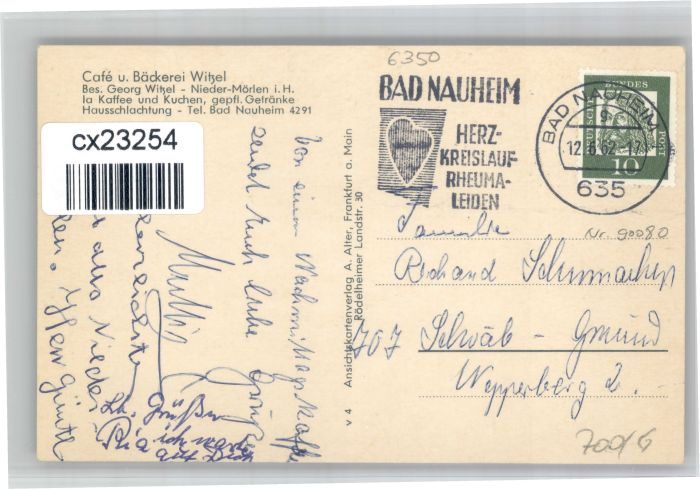 Café u. Bäckerei Witzel
Bes. Georg Witzel - Nieder-Mörlen i. H.
la Kaffee und Kuchen, gepfl. Getränke
Hausschlachtung - Tel. Bad Nauheim 4291
cx23254
6350
BAD NAUHEIM
HERZ-
KREISLAUF-
RHEUMA-
LEIDEN
BAD NAUHEIM
g
12.6.62.-17
635
BUNDES
POST
10
Nr. 90080
Familie
Richard Schumacher
707 Schwäb-Gmünd
2.
700/6
v 4 Ansichtskartenverlag A. Alter, Frankfurt a. Main
Rödelheimer Landstr. 30
Von einem Nachmittagskaffee
sendet Euch liebe Grüße
Mutti
aus Nieder
Lb. Grüße
ich warte
Pia auf Dich